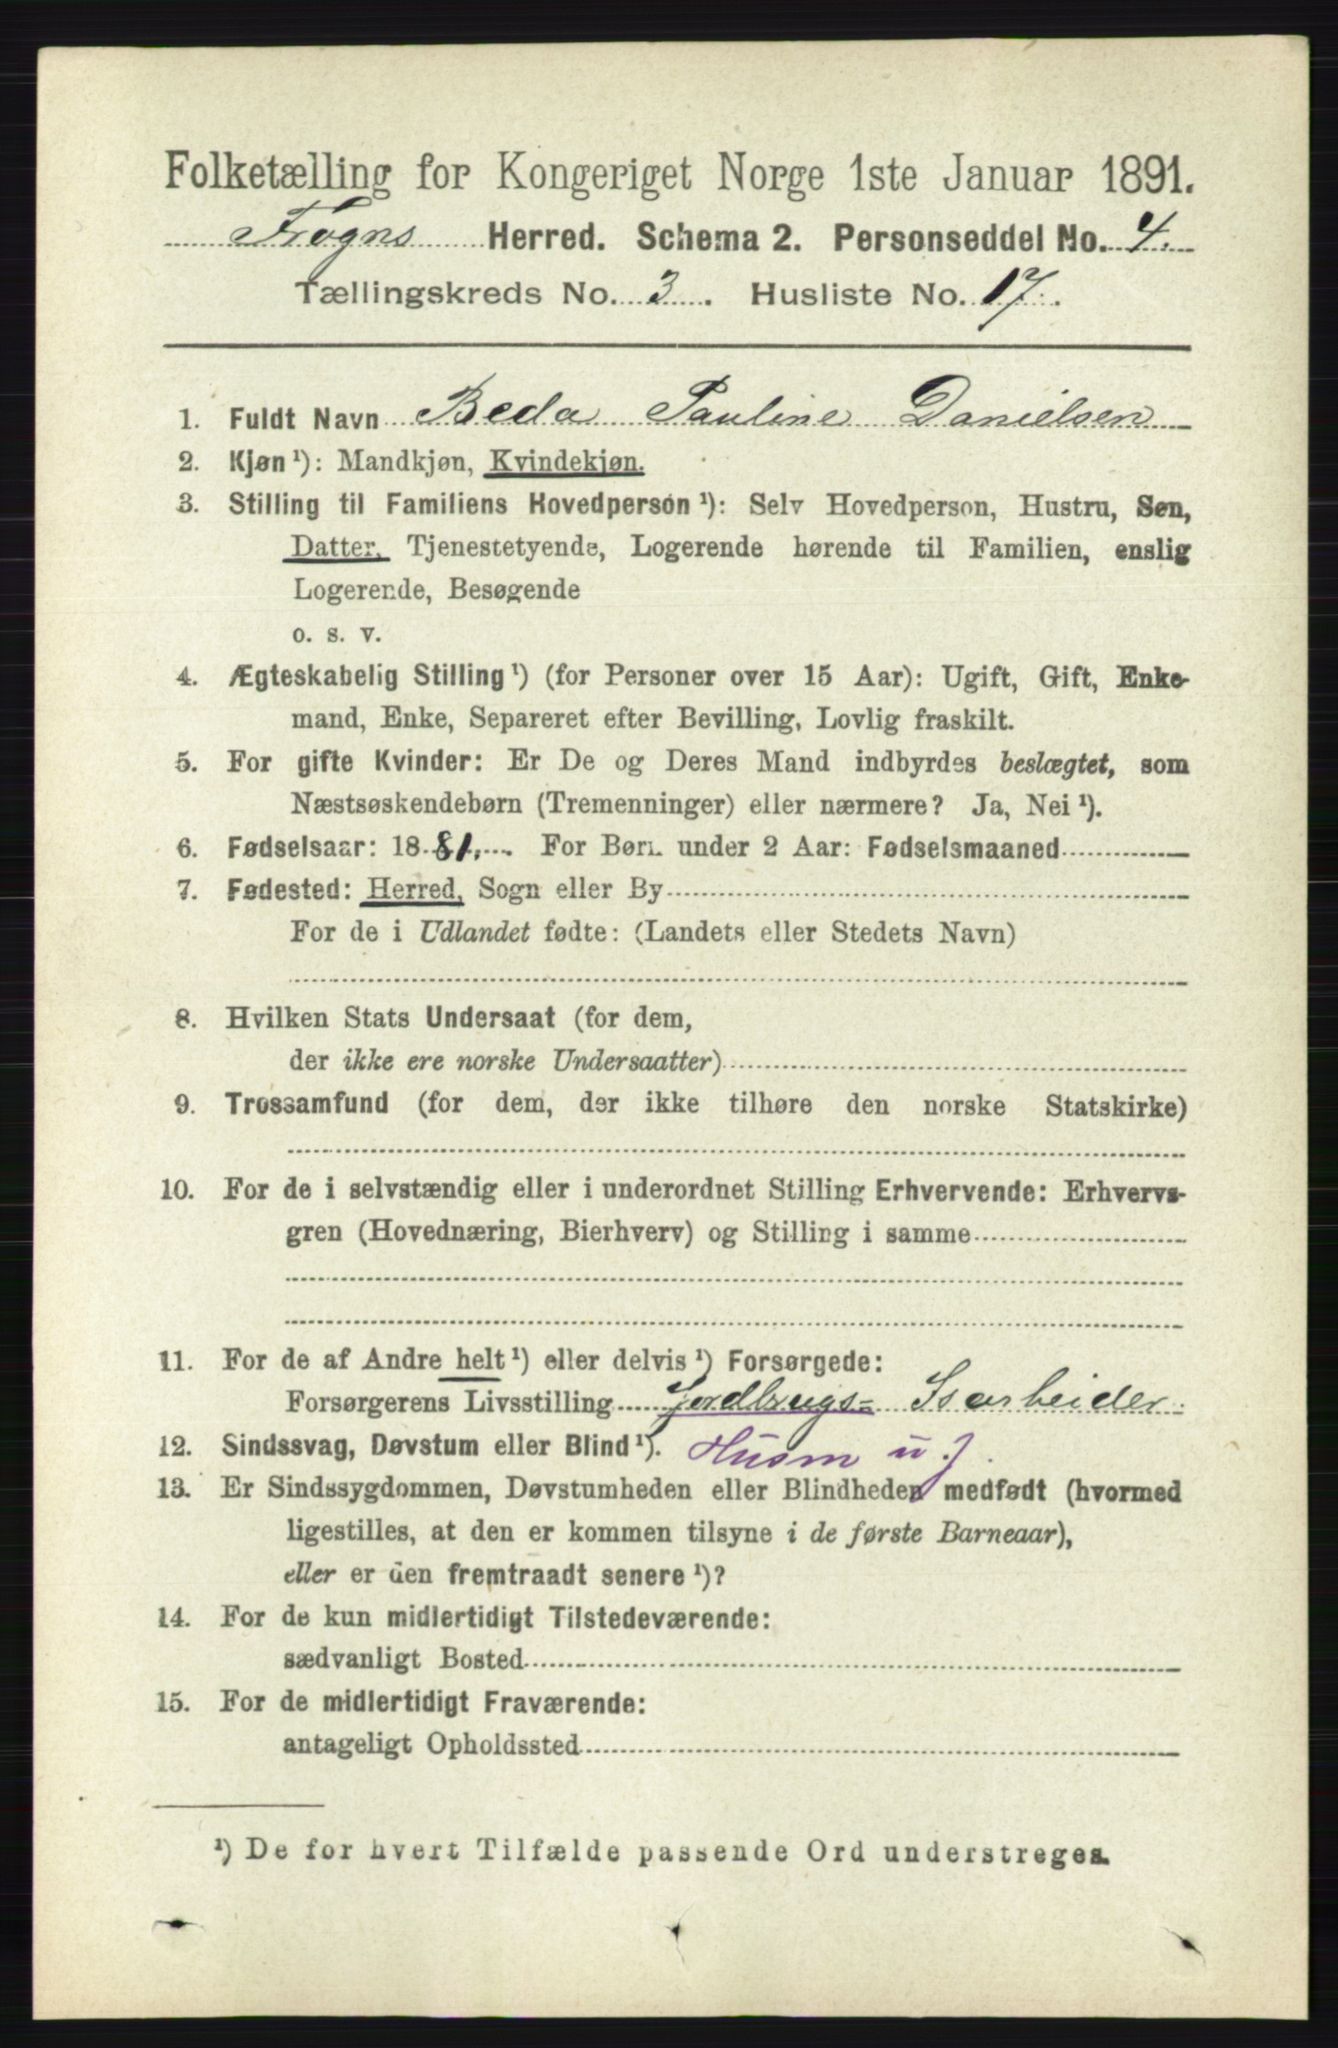 Folketælling for Kongeriget Norge 1ste Januar 1891.
Frogns Herred. Schema 2. Personseddel No. 4.
Tællingskreds No. 3. Husliste No. 17.
1. Fuldt Navn Beda Pauline Danielsen
2. Kjøn ¹): Mandkjøn, Kvindekjøn.
3. Stilling til Familiens Hovedperson ¹): Selv Hovedperson, Hustru, Søn,
Datter, Tjenestetyende, Logerende hørende til Familien, enslig
Logerende, Besøgende
o. s. v.
4. Ægteskabelig Stilling ¹) (for Personer over 15 Aar): Ugift, Gift, Enke-
mand, Enke, Separeret efter Bevilling, Lovlig fraskilt.
5. For gifte Kvinder: Er De og Deres Mand indbyrdes beslægtet, som
Næstsøskendebørn (Tremenninger) eller nærmere? Ja, Nei ¹).
6. Fødselsaar: 1881. For Børn under 2 Aar: Fødselsmaaned
7. Fødested: Herred, Sogn eller By
For de i Udlandet fødte: (Landets eller Stedets Navn)
8. Hvilken Stats Undersaat (for dem,
der ikke ere norske Undersaatter)
9. Trossamfund (for dem, der ikke tilhøre den norske Statskirke)
10. For de i selvstændig eller i underordnet Stilling Erhvervende: Erhvervs-
gren (Hovednæring, Bierhverv) og Stilling i samme
11. For de af Andre helt ¹) eller delvis ¹) Forsørgede:
Forsørgerens Livsstilling Jordbrugs= Isarbeider.
12. Sindssvag, Døvstum eller Blind ¹). Husm u. J.
13. Er Sindssygdommen, Døvstumheden eller Blindheden medfødt (hvormed
ligestilles, at den er kommen tilsyne i de første Barneaar),
eller er den fremtraadt senere ¹)?
14. For de kun midlertidigt Tilstedeværende:
sædvanligt Bosted
15. For de midlertidigt Fraværende:
antageligt Opholdssted
¹) De for hvert Tilfælde passende Ord understreges.